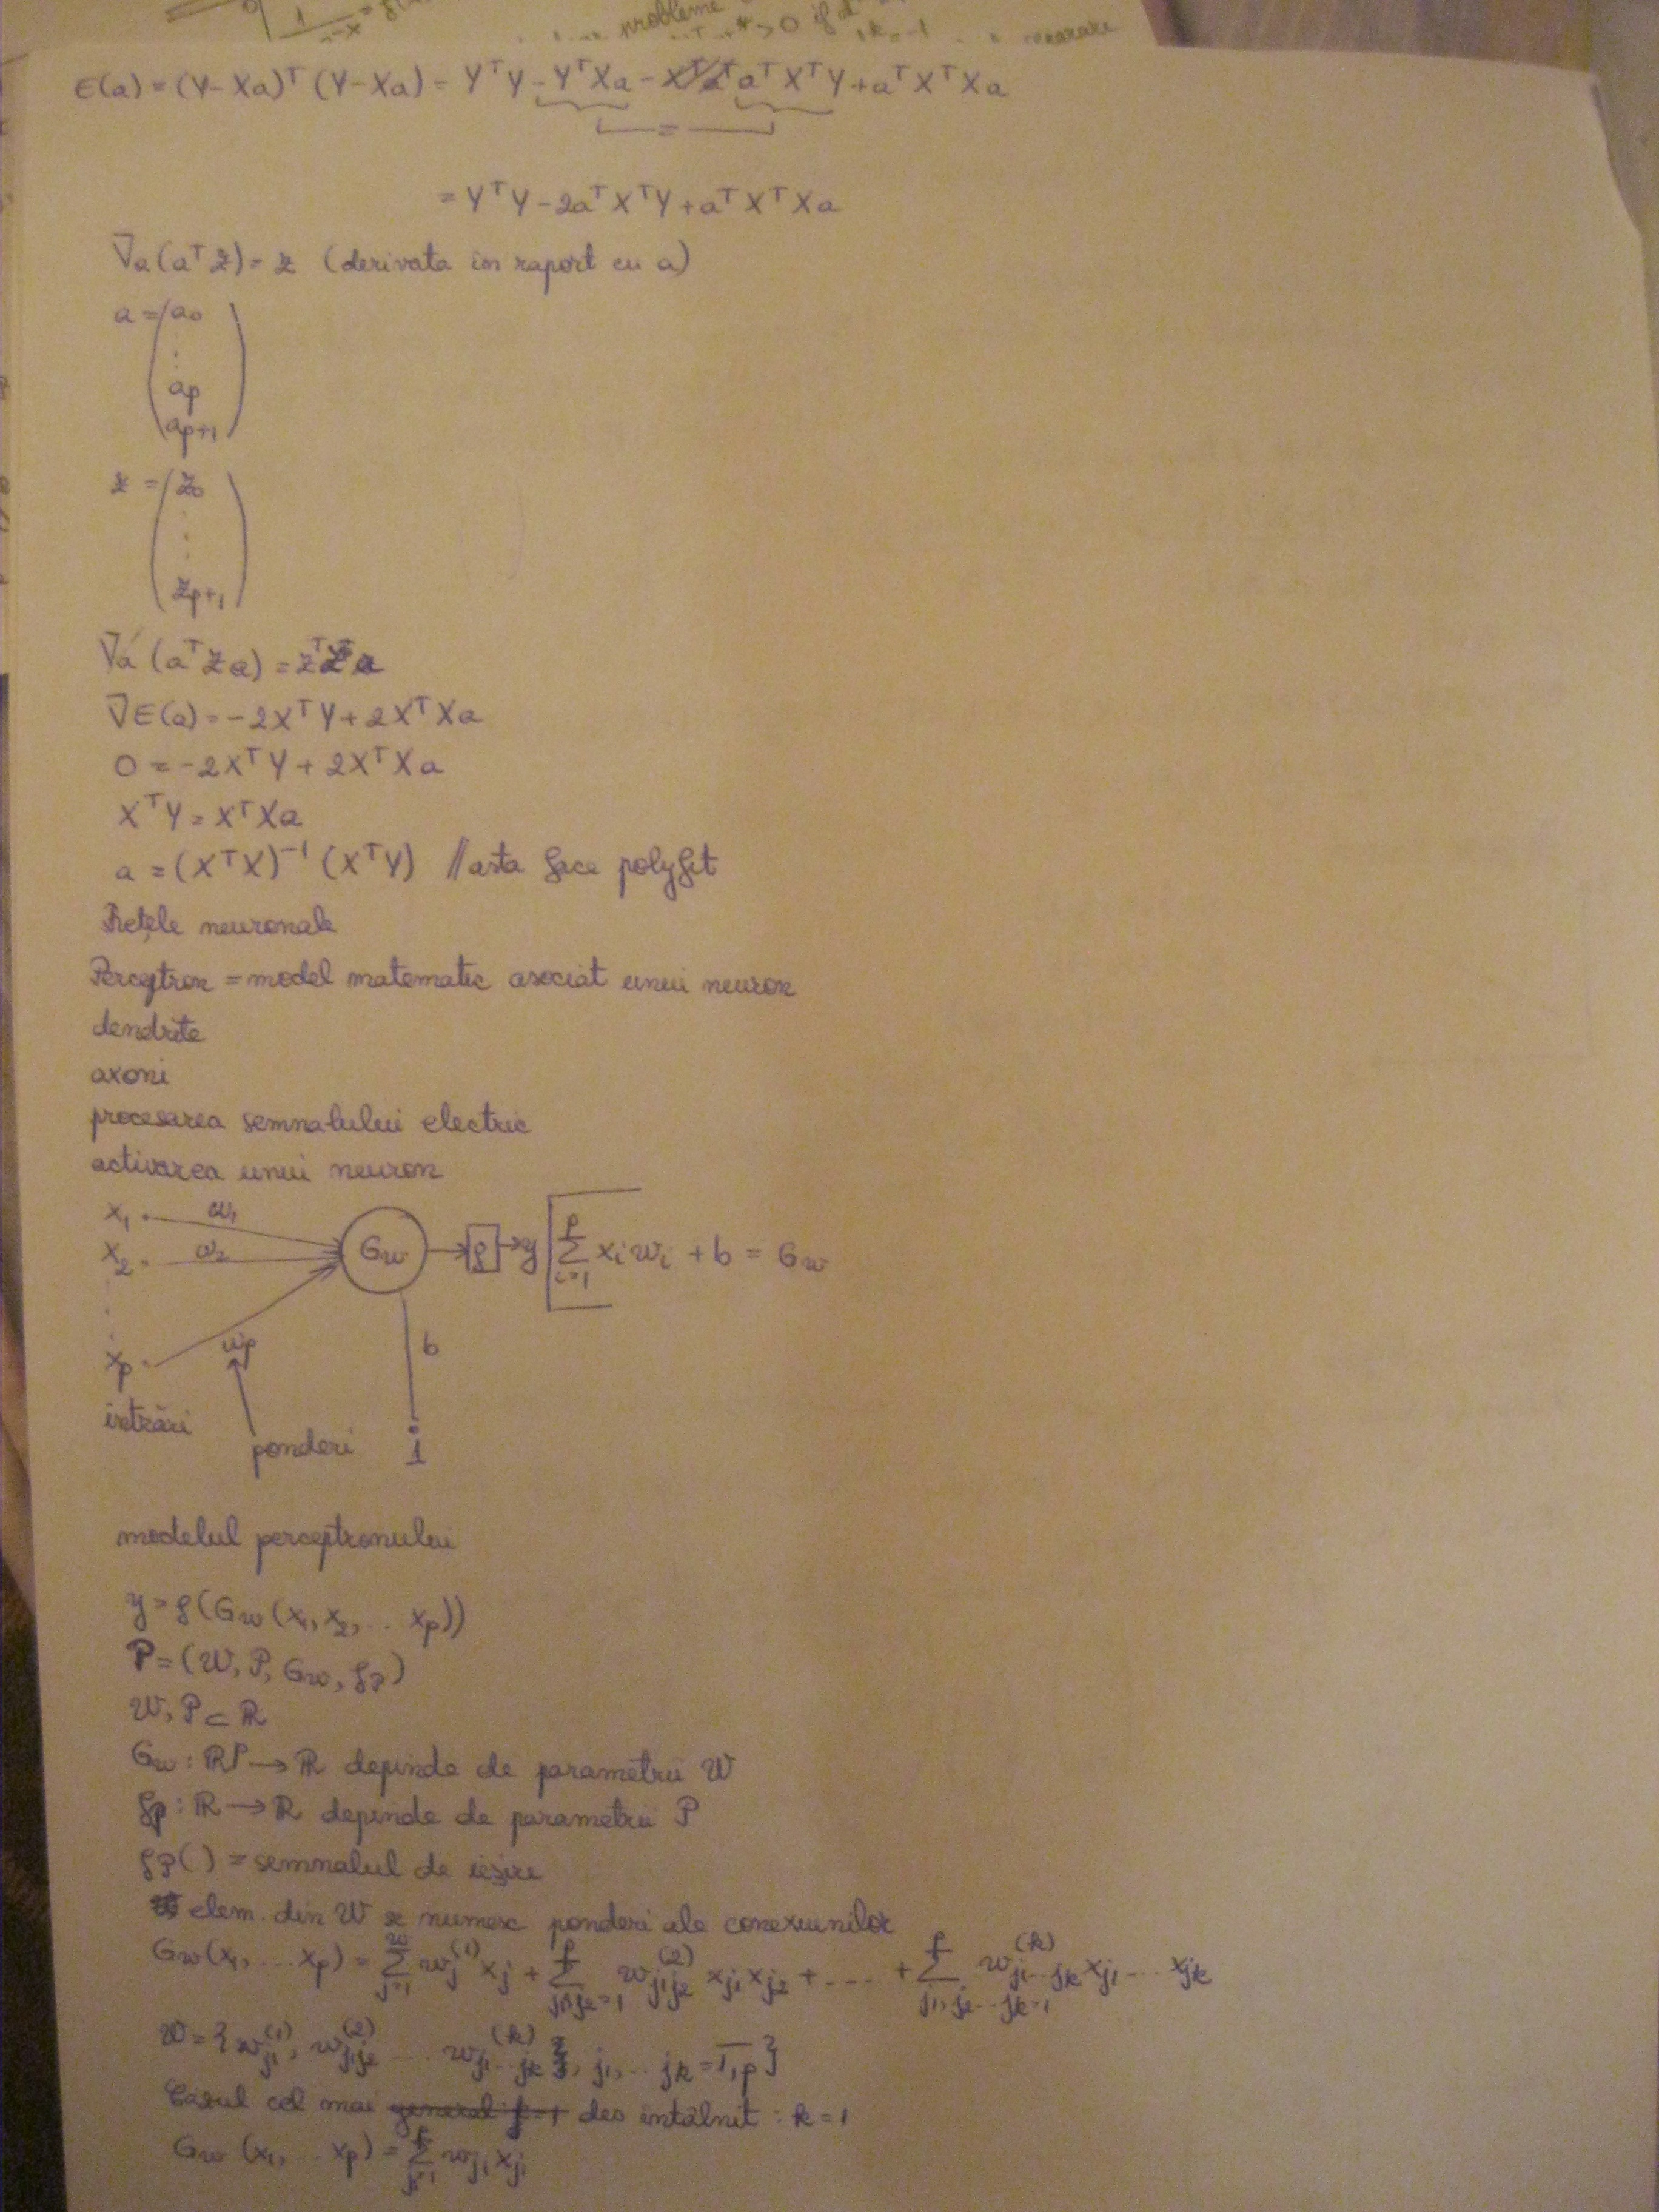 probleme
>0 if
k=-1
E(a) = (Y-Xa)ᵀ (Y-Xa) = YᵀY - YᵀXa - aᵀXᵀY + aᵀXᵀXa
=
= YᵀY - 2aᵀXᵀY + aᵀXᵀXa
∇a(aᵀz) = z (derivata în raport cu a)
a = (a₀
⋮
ap
ap+1)
z = (z₀
⋮
zp+1)
∇a (aᵀza) =
∇E(a) = -2XᵀY + 2XᵀXa
0 = -2XᵀY + 2XᵀXa
XᵀY = XᵀXa
a = (XᵀX)⁻¹ (XᵀY) //asta face polyfit
Rețele neuronale
Perceptron = model matematic asociat unui neuron
dendrite
axoni
procesarea semnalului electric
activarea unui neuron
x₁ w₁
x₂ w₂ Gw → f → y [ Σ_{i=1}^{p} xᵢwᵢ + b = Gw
⋮
xp wp b
intrări ponderi 1
modelul perceptronului
y = f(Gw(x₁, x₂, ... xp))
P = (W, P, Gw, fP)
W, P ⊂ ℝ
Gw : ℝᵖ → ℝ depinde de parametrii W
fp : ℝ → ℝ depinde de parametrii P
fP( ) = semnalul de ieșire
elem. din W se numesc ponderi ale conexiunilor
Gw(x₁, ... xp) = Σ_{j=1} wj⁽¹⁾ xj + Σ_{j1,j2=1}^{p} w_{j1j2}⁽²⁾ x_{j1} x_{j2} + .... + Σ_{j1,j2...jk=1}^{p} w_{j1...jk}⁽ᵏ⁾ x_{j1} ... x_{jk}
W = {w_{j1}⁽¹⁾, w_{j1j2}⁽²⁾ ... w_{j1...jk}⁽ᵏ⁾, j1, ... jk = 1,p}
Cazul cel mai general k=1 des întâlnit : k = 1
Gw (x₁, ... xp) = Σ_{j1=1}^{p} w_{j1} x_{j1}